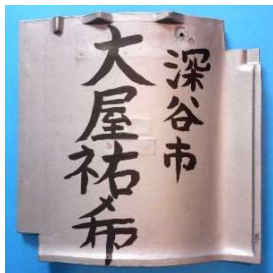 深谷市
大屋祐希